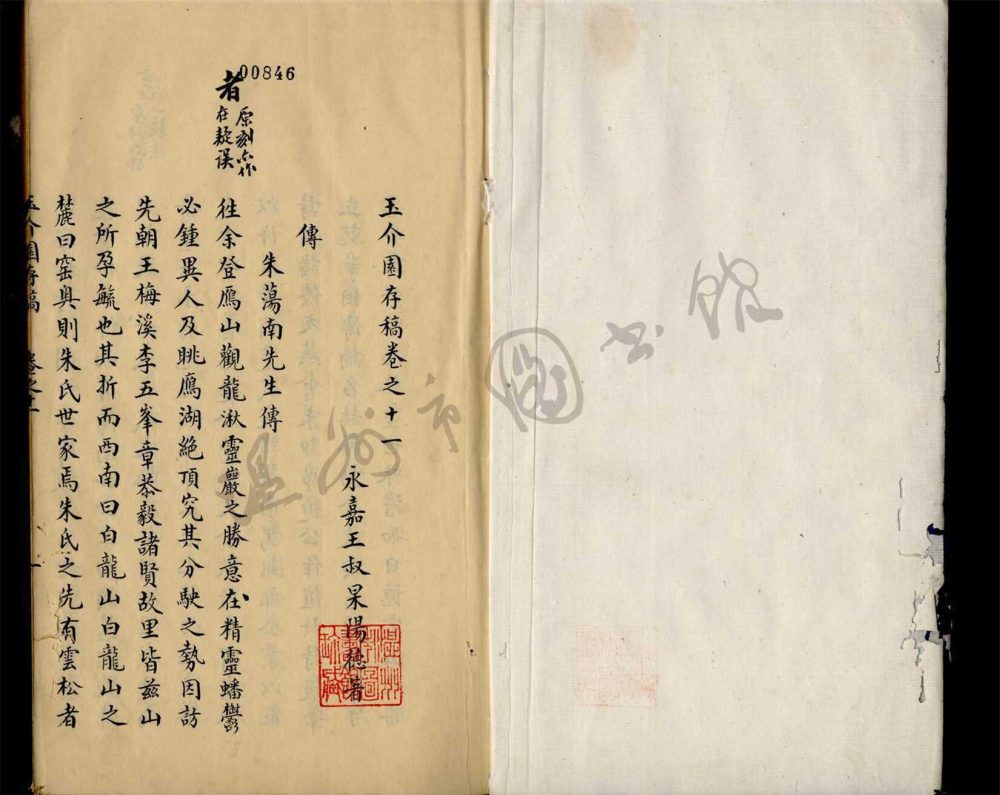 00846
者
原刻亦作
在疑误
玉介園存稿卷之十一
永嘉王叔杲陽德著
傳
朱蕩南先生傳
往余登鴈山觀龍湫靈巖之勝意在精靈蟠鬱
必鍾異人及眺鴈湖絶頂究其分駛之勢因訪
先朝王梅溪李五峯章恭毅諸賢故里皆兹山
之所孕毓也其折而西南曰白龍山白龍山之
麓曰窑奥則朱氏世家焉朱氏之先有雲松者
玉介園存稿
卷之十一
一
温州市圖書館